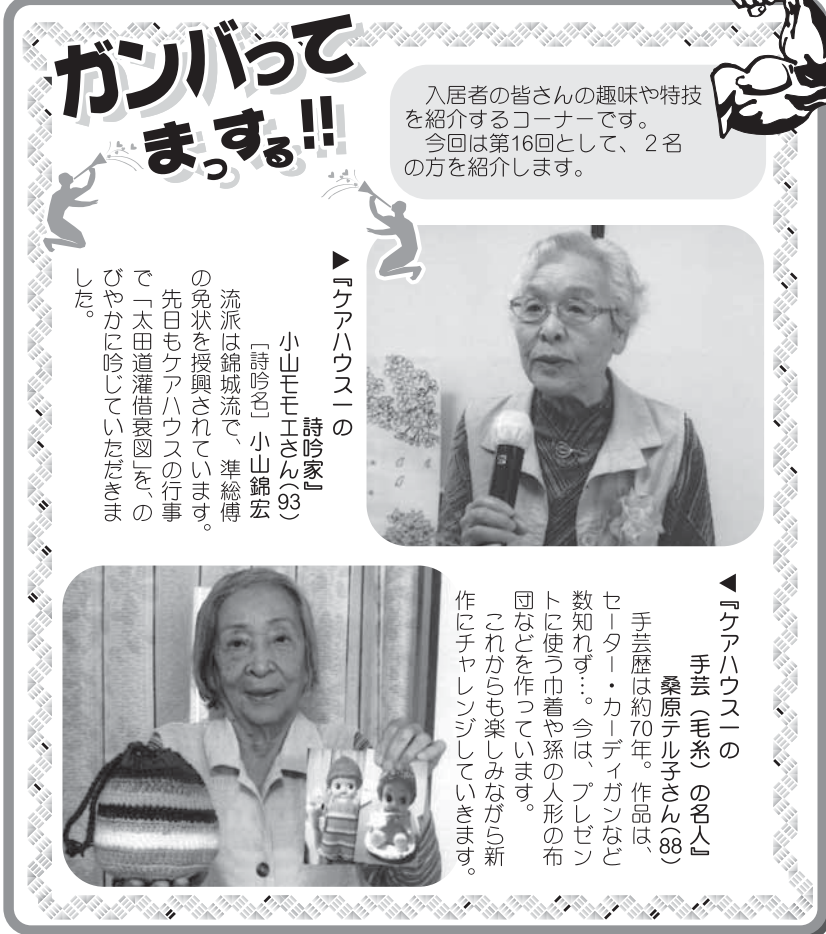 ガンバって
まっする!!
入居者の皆さんの趣味や特技
を紹介するコーナーです。
今回は第16回として、２名
の方を紹介します。
▲『ケアハウス一の
詩吟家』
小山モモエさん(93)
［詩吟名］小山錦宏
流派は錦城流で、準総傅
の免状を授興されています。
先日もケアハウスの行事
で「太田道灌借衰図」を、の
びやかに吟じていただきま
した。
▼『ケアハウス一の
手芸（毛糸）の名人』
桑原テル子さん(88)
手芸歴は約70年。作品は、
セーター・カーディガンなど
数知れず…。今は、プレゼン
トに使う巾着や孫の人形の布
団などを作っています。
これからも楽しみながら新
作にチャレンジしていきます。